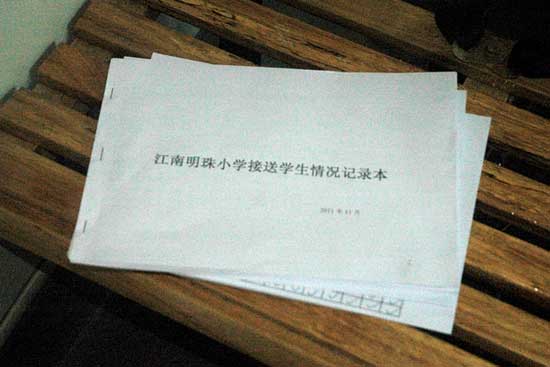 江南明珠小学接送学生情况记录本
2011 年 11 月